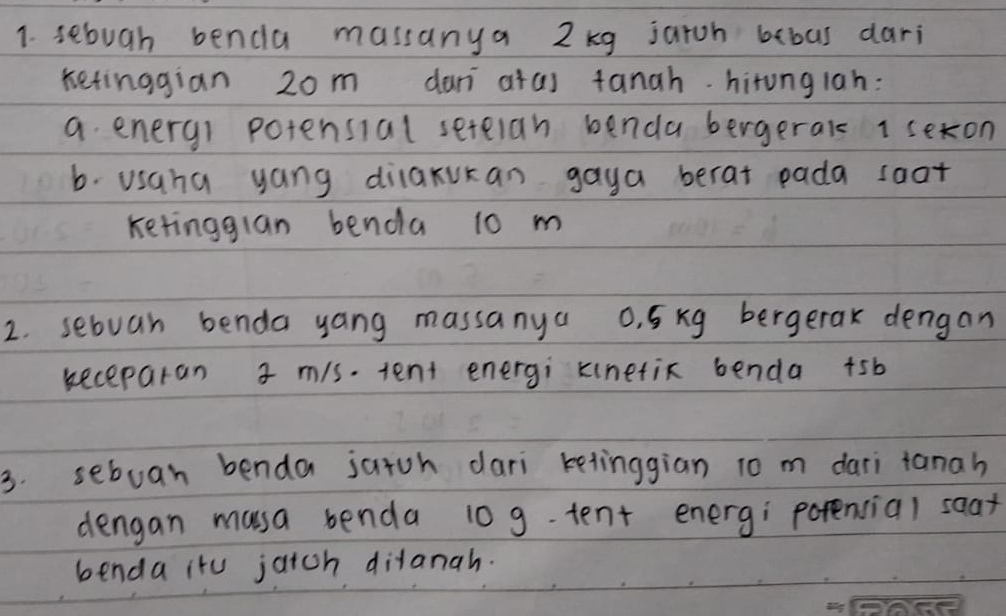 1. sebuah benda massanya 2 kg jatuh bebas dari
ketinggian 20 m dari atas tanah. hitunglah:
a. energi potensial setelah benda bergerak 1 sekon
b. usaha yang dilakukan gaya berat pada saat
ketinggian benda 10 m
2. sebuah benda yang massanya 0,5 kg bergerak dengan
kecepatan 2 m/s. tent energi kinetik benda tsb
3. sebuah benda jatuh dari ketinggian 10 m dari tanah
dengan massa benda 10 g. tent energi potensial saat
benda itu jatuh ditanah.